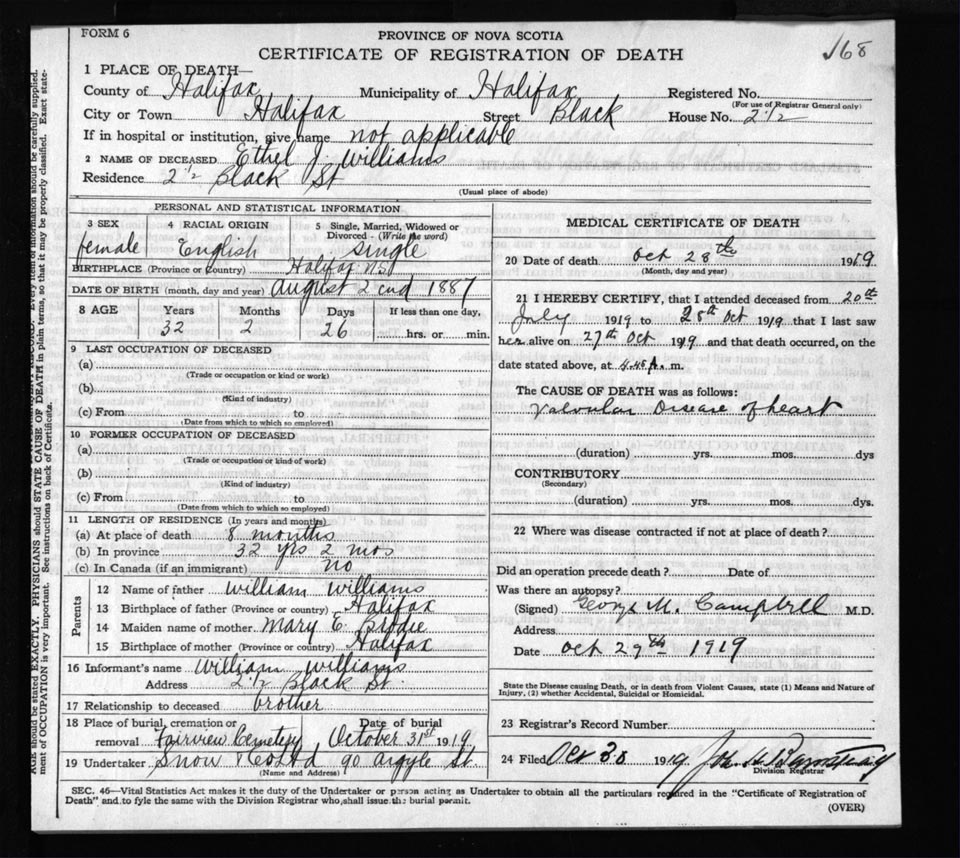 FORM 6
PROVINCE OF NOVA SCOTIA
CERTIFICATE OF REGISTRATION OF DEATH
168
1 PLACE OF DEATH—
County of Halifax Municipality of Halifax Registered No.
(For use of Registrar General only)
City or Town Halifax Street Black House No. 2 1/2
If in hospital or institution, give name not applicable
2 NAME OF DECEASED Ethel J. Williams
Residence 2 1/2 Black St
(Usual place of abode)
PERSONAL AND STATISTICAL INFORMATION
3 SEX 4 RACIAL ORIGIN 5 Single, Married, Widowed or Divorced - (Write the word)
female English single
BIRTHPLACE (Province or Country) Halifax N.S.
DATE OF BIRTH (month, day and year) august 2cnd 1887
8 AGE Years Months Days If less than one day,
32 2 26 hrs. or min.
9 LAST OCCUPATION OF DECEASED
(a)
(Trade or occupation or kind or work)
(b)
(Kind of industry)
(c) From to
(Date from which to which so employed)
10 FORMER OCCUPATION OF DECEASED
(a)
(Trade or occupation or kind of work)
(b)
(Kind of industry)
(c) From to
(Date from which to which so employed)
11 LENGTH OF RESIDENCE (In years and months)
(a) At place of death 8 months
(b) In province 32 yrs 2 mos
(c) In Canada (if an immigrant) no
Parents
12 Name of father William Williams
13 Birthplace of father (Province or country) Halifax
14 Maiden name of mother Mary E. Brodie
15 Birthplace of mother (Province or country) Halifax
16 Informant's name William Williams
Address 2 1/2 Black St.
17 Relationship to deceased brother
18 Place of burial, cremation or removal Fairview Cemetery Date of burial October 31st 1919
19 Undertaker Snow & Co Ltd 90 argyle St.
(Name and Address)
MEDICAL CERTIFICATE OF DEATH
20 Date of death Oct 28th 1919
(Month, day and year)
21 I HEREBY CERTIFY, that I attended deceased from 20th
July 1919 to 28th Oct 1919 that I last saw
her alive on 27th Oct 1919 and that death occurred, on the
date stated above, at 4.45 A. m.
The CAUSE OF DEATH was as follows:
Valvular Disease of heart
(duration) yrs. mos. dys
CONTRIBUTORY
(Secondary)
(duration) yrs. mos. dys.
22 Where was disease contracted if not at place of death?
Did an operation precede death? Date of
Was there an autopsy?
(Signed) George M. Campbell M.D.
Address
Date Oct 29th 1919
State the Disease causing Death, or in death from Violent Causes, state (1) Means and Nature of
Injury, (2) whether Accidental, Suicidal or Homicidal.
23 Registrar's Record Number
24 Filed Oct 30 1919
Division Registrar
SEC. 46—Vital Statistics Act makes it the duty of the Undertaker or person acting as Undertaker to obtain all the particulars required in the "Certificate of Registration of
Death" and to fyle the same with the Division Registrar who shall issue the burial permit.
(OVER)
AGE should be stated EXACTLY. PHYSICIANS should STATE CAUSE OF DEATH in plain terms, so that it may be properly classified. Exact state-
ment of OCCUPATION is very important. See instructions on back of Certificate.